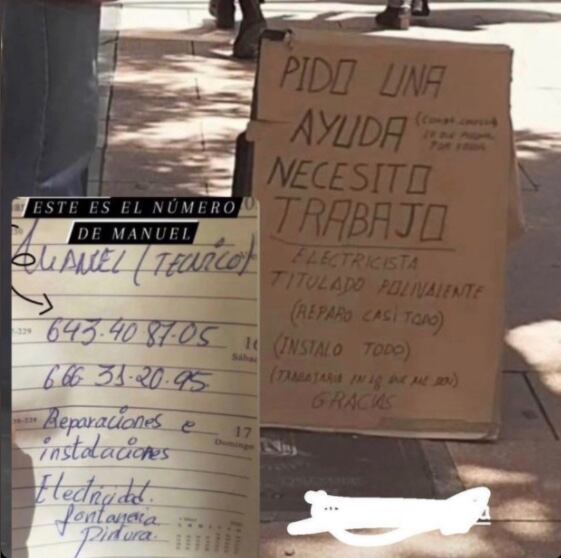 PIDO UNA
AYUDA
NECESITO
TRABAJO
ELECTRICISTA
TITULADO POLIVALENTE
(REPARO CASI TODO)
(INSTALO TODO)
(TRABAJARIA EN LO QUE ME DEN)
GRACIAS
ESTE ES EL NÚMERO
DE MANUEL
MANUEL (TECNICO)
643-40 87-05
666 31-20-95
Reparaciones e
instalaciones
Electricidad.
fontaneria
pintura.
16
Sábado
17
Domingo